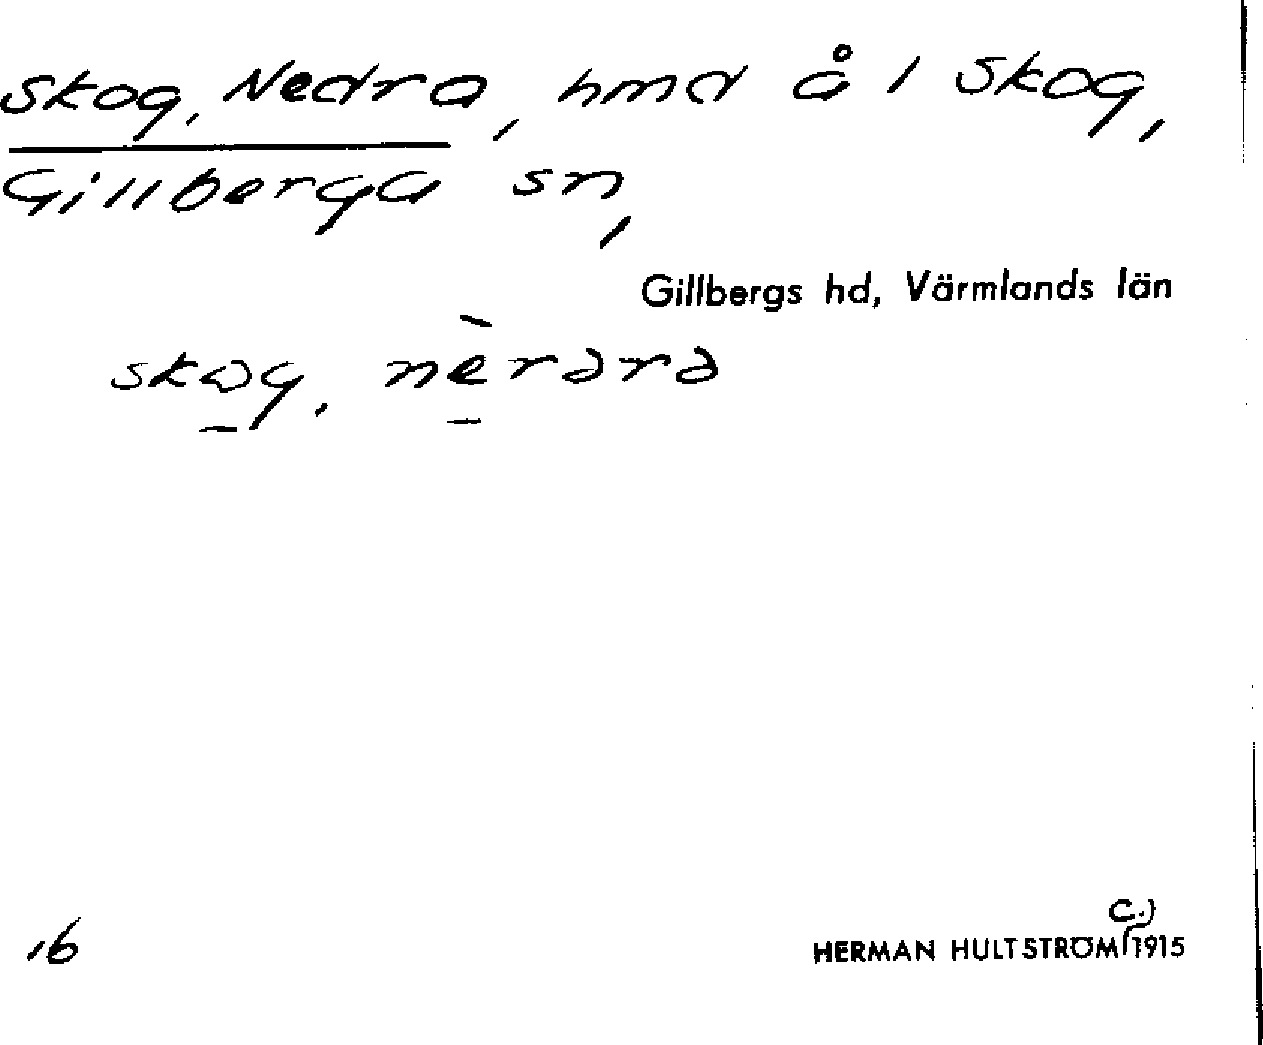 Skog, Nedra, hmd å 1 Skog,
Gillberga sn,
Gillbergs hd, Värmlands län
skωg, nèrərə
16
HERMAN HULTSTRÖM (c.) 1915